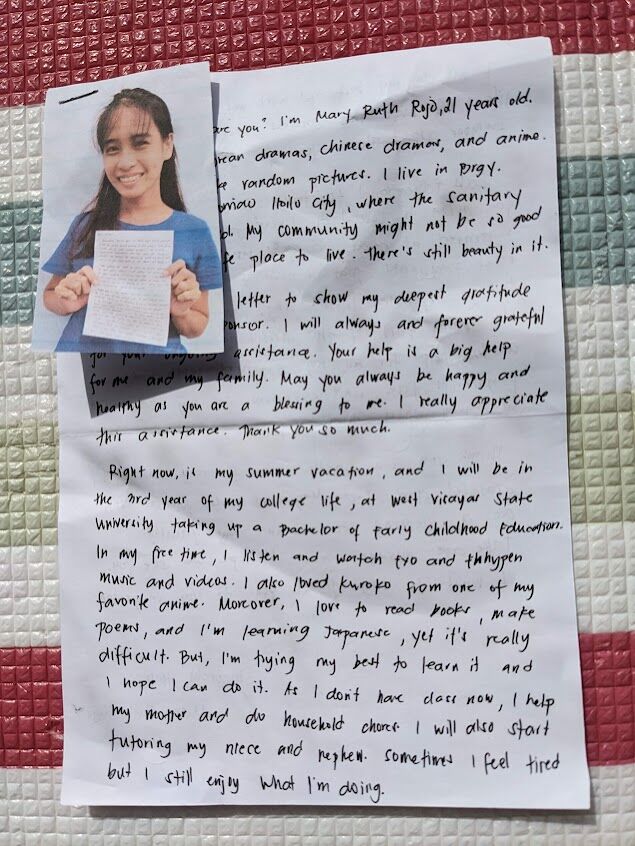 are you? I'm Mary Ruth Rojo, 21 years old.
rean dramas, chinese dramas, and anime.
e random pictures. I live in Brgy.
Iloilo City, where the sanitary
d. My community might not be so good
fe place to live. There's still beauty in it.
letter to show my deepest gratitude
ponsor. I will always and forever grateful
for your ongoing assistance. Your help is a big help
for me and my family. May you always be happy and
healthy as you are a blessing to me. I really appreciate
this assistance. Thank you so much.
Right now, is my summer vacation, and I will be in
the 3rd year of my college life, at West Visayas State
University taking up a Bachelor of Early Childhood Education.
In my free time, I listen and watch Exo and Enhypen
music and videos. I also loved Kuroko from one of my
favorite anime. Moreover, I love to read books, make
poems, and I'm learning Japanese, yet it's really
difficult. But, I'm trying my best to learn it and
I hope I can do it. As I don't have class now, I help
my mother and do household chores. I will also start
tutoring my niece and nephew. Sometimes I feel tired
but I still enjoy what I'm doing.